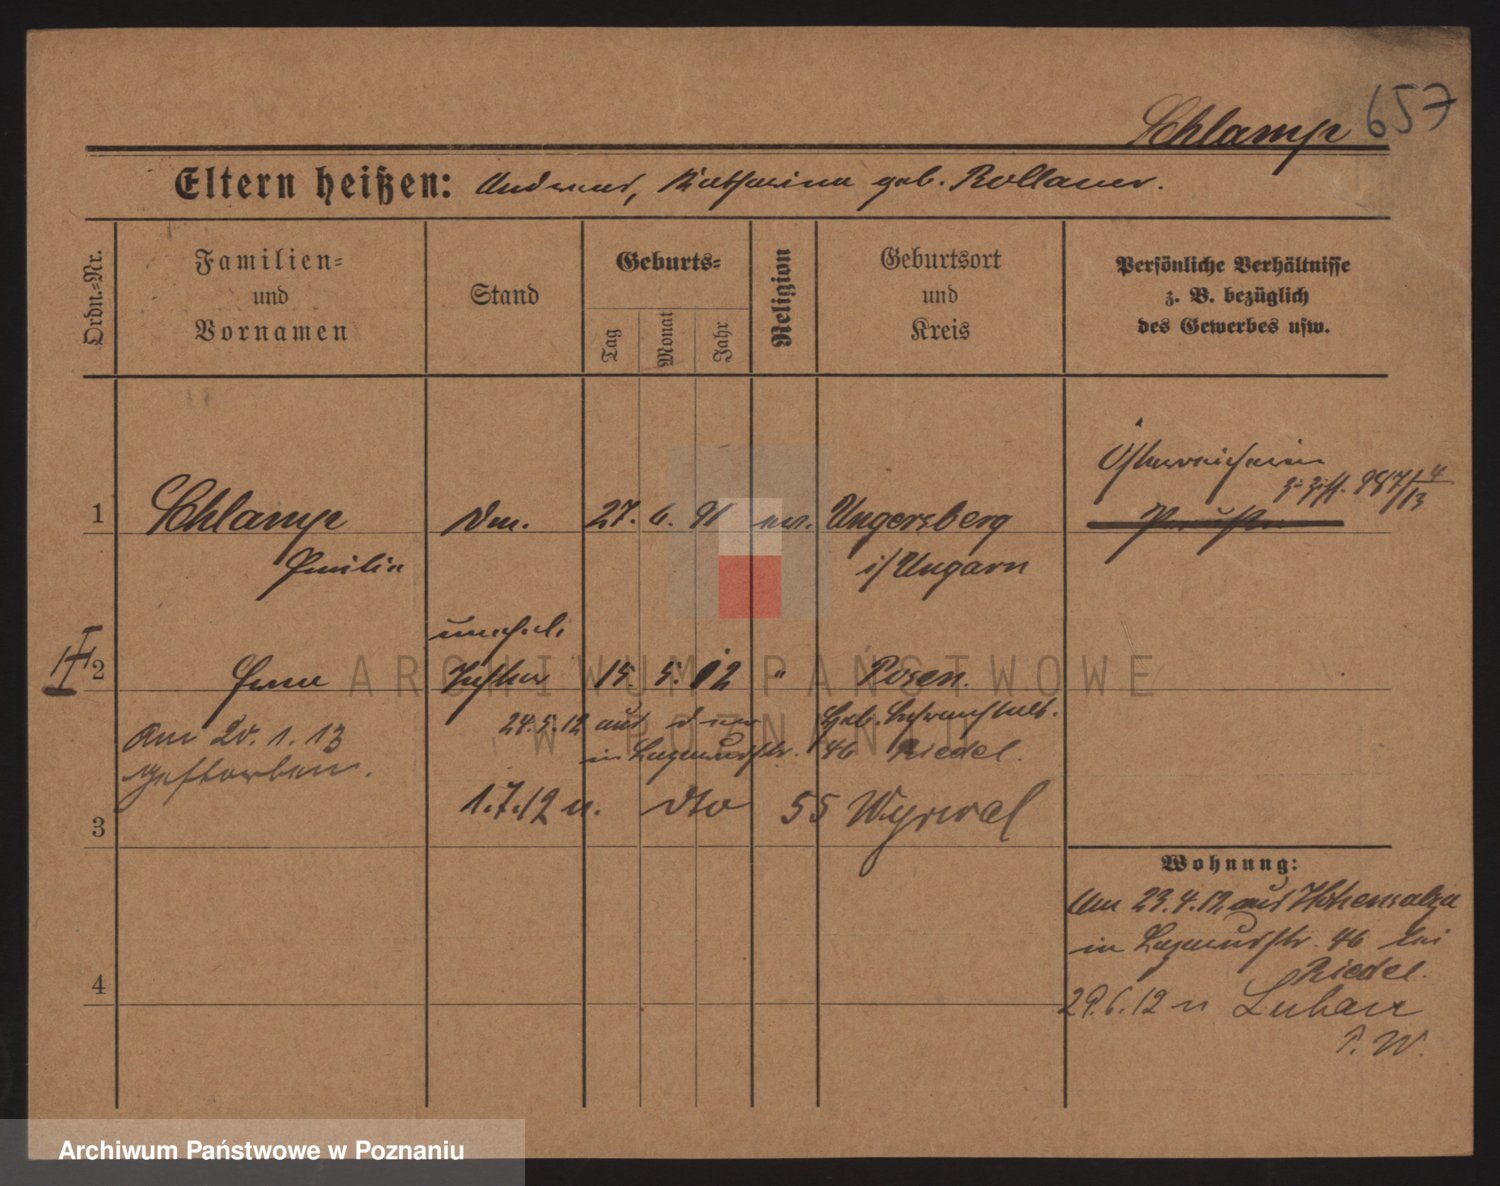 657
Schlamp
Eltern heißen: Andreas, Katharina geb. Rollauer.
Ordn.-Nr.
Familien-
und
Vornamen
Stand
Geburts-
Tag
Monat
Jahr
Religion
Geburtsort
und
Kreis
Persönliche Verhältnisse
z. B. bezüglich
des Gewerbes usw.
Österreicherin
1 Schlamp 27. 6. 91 Ungersberg
Emilie i/Ungarn
unehel.
2 Tochter 15. 5. 12 " Posen.
24.5.12 aus der Heb. Lehranstalt.
in 46 Riedel.
Am 20. 1. 13
gestorben.
1.7.12 n. dto 55 Wyrwal
3
Wohnung:
Am 23.4.12 aus Hohensalza
in 46 bei
Riedel.
29.6.12 n Luban
P. W.
4
ARCHIWUM PAŃSTWOWE
W POZNANIU
Archiwum Państwowe w Poznaniu